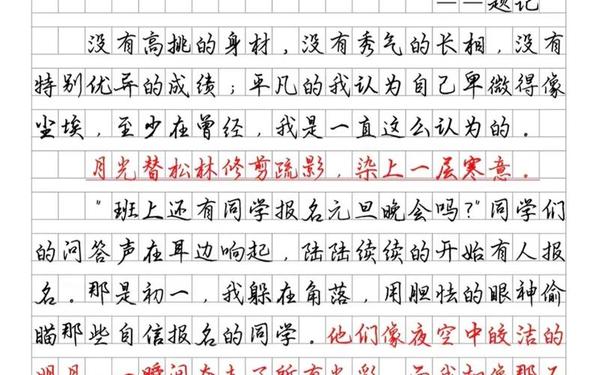 ——题记
没有高挑的身材，没有秀气的长相，没有
特别优异的成绩；平凡的我认为自己卑微得像
尘埃，至少在曾经，我是一直这么认为的。
月光替松林修剪疏影，染上一层寒意。
"班上还有同学报名元旦晚会吗？"同学们
的问答声在耳边响起，陆陆续续的开始有人报
名。那是初一，我躲在角落，用胆怯的眼神偷
瞄那些自信报名的同学。他们像夜空中皎洁的
明月，一瞬间夺走了所有光彩，而我却像那